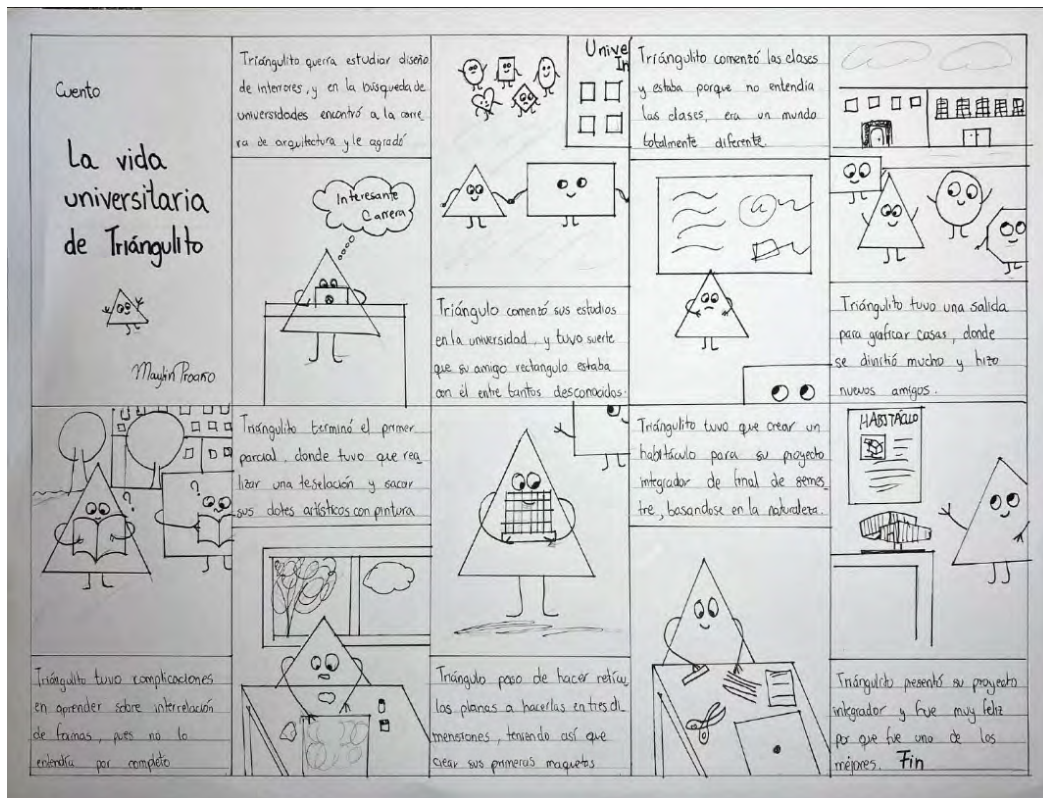 Cuento
La vida
universitaria
de Triángulito
Maylin Proaño
Triángulito quería estudiar diseño
de interiores, y en la búsqueda de
universidades encontró a la carre
ra de arquitectura y le agradó
Interesante
Carrera
Unive
In
Triángulo comenzó sus estudios
en la universidad, y tuvo suerte
que su amigo rectangulo estaba
con él entre tantos desconocidos.
Triángulito comenzó las clases
y estaba porque no entendia
las clases, era un mundo
totalmente diferente.
Triángulito tuvo una salida
para graficar casas, donde
se divirtió mucho y hizo
nuevos amigos.
? ?
Triángulito tuvo complicaciones
en aprender sobre interrelación
de formas, pues no lo
entendía por completo
Triángulito terminó el primer
parcial, donde tuvo que rea
lizar una teselación y sacar
sus dotes artísticos con pintura
Triángulo paso de hacer retícu
las planas a hacerlas en tres di
mensiones, teniendo así que
crear sus primeras maquetas
Triángulito tuvo que crear un
habitáculo para su proyecto
integrador de final de semes
tre, basandose en la naturaleza.
HABITÁCULO
Triángulito presentó su proyecto
integrador y fue muy feliz
por que fue uno de los
mejores. Fin